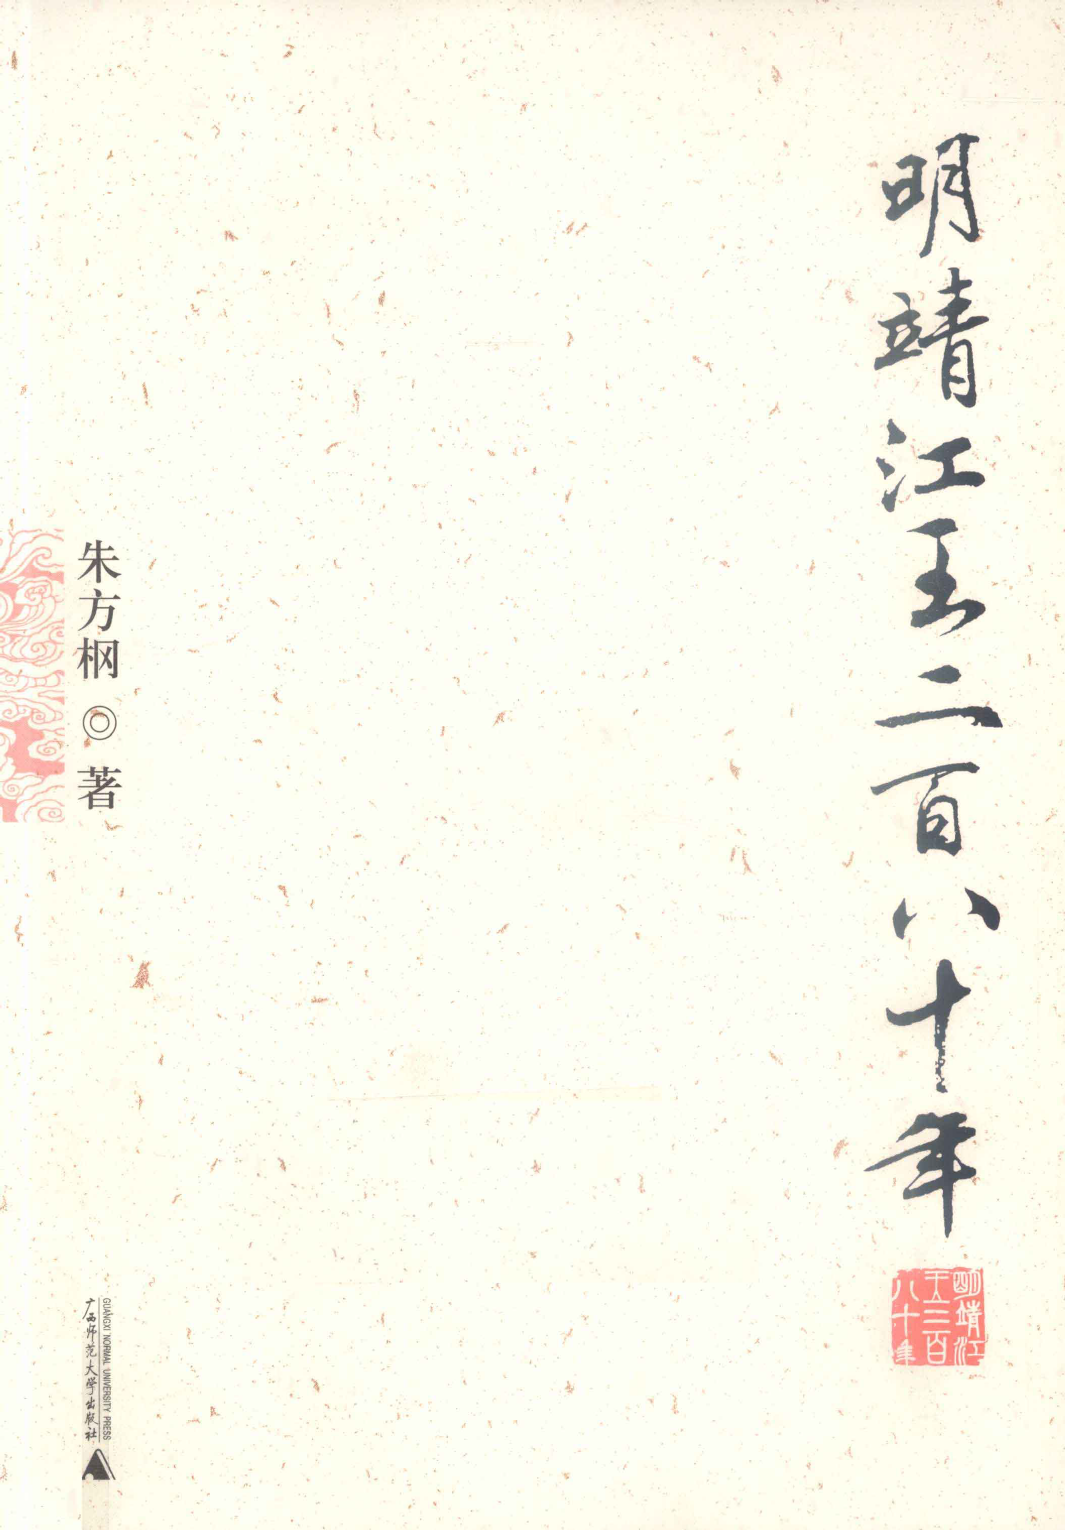 明靖江王二百八十年
明靖江
王二百
八十年
朱方棡◎著
广西师范大学出版社
GUANGXI NORMAL UNIVERSITY PRESS